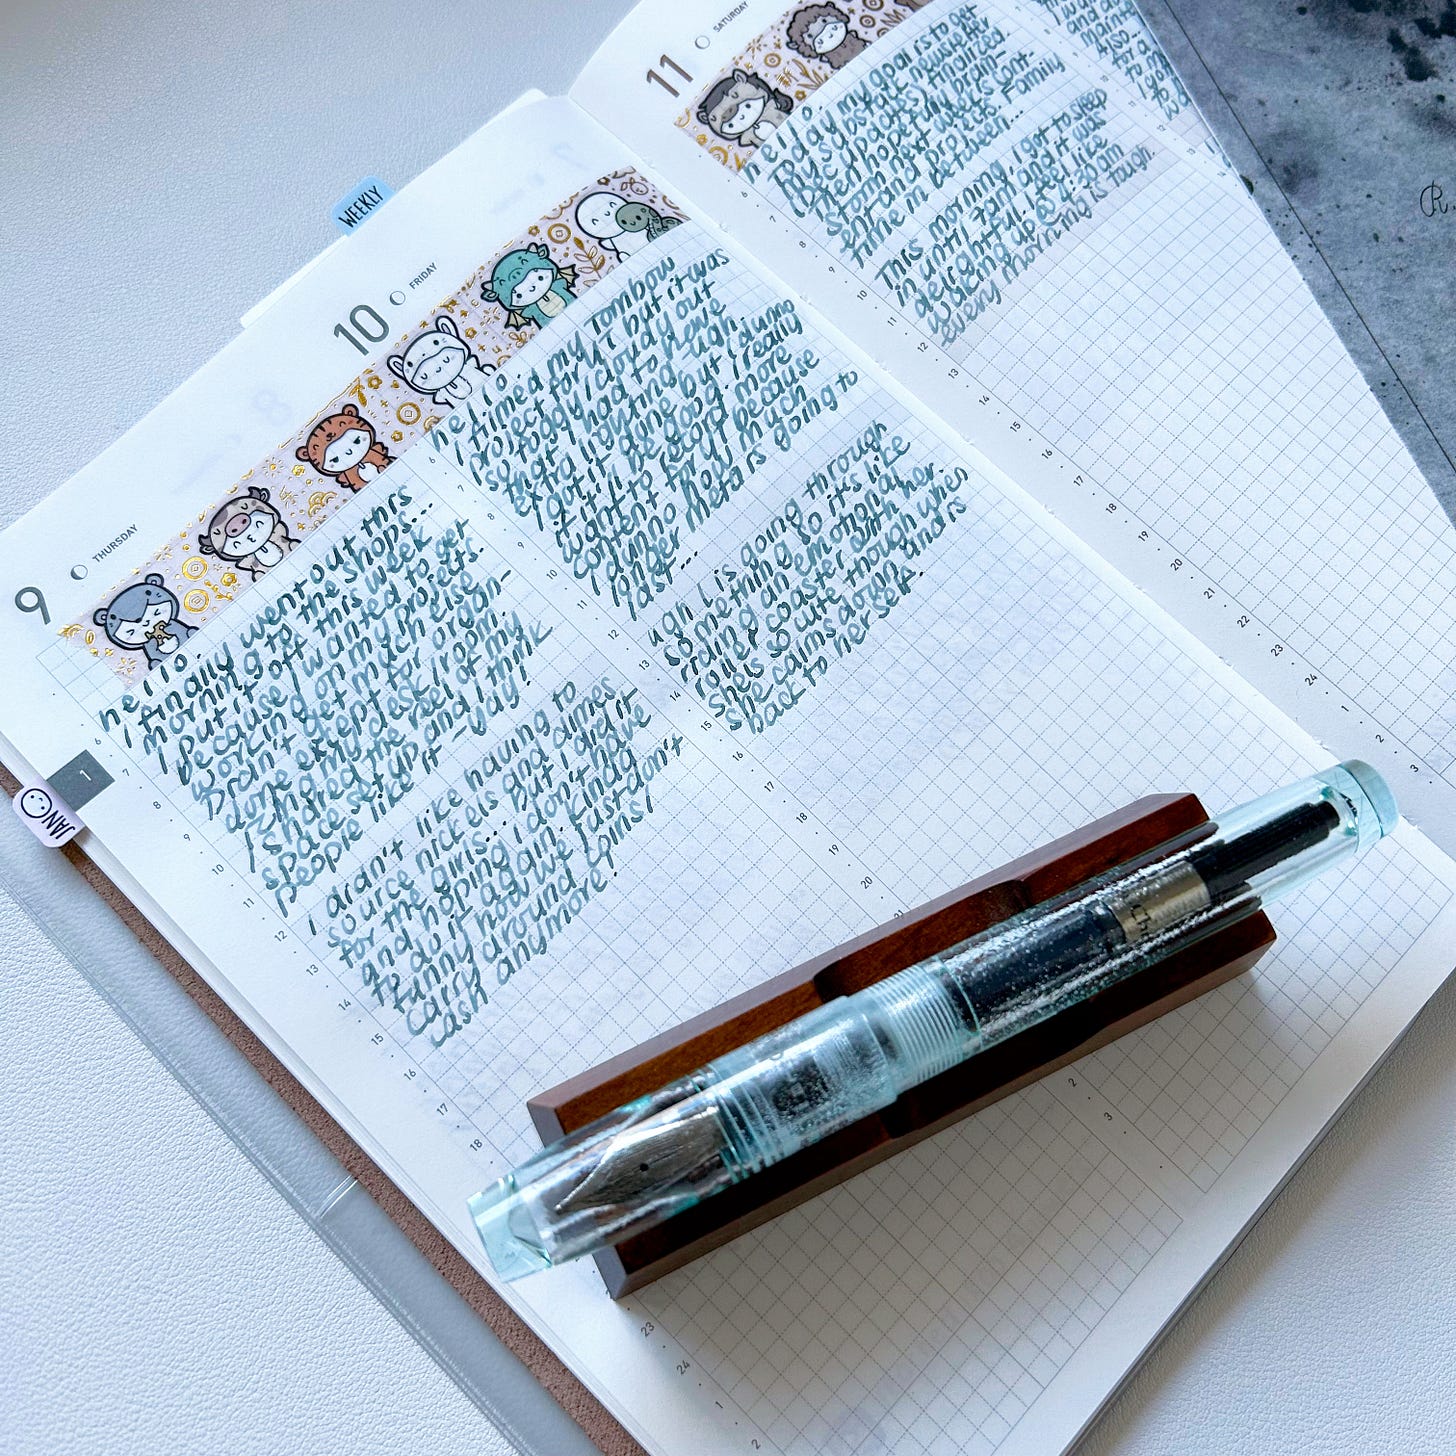 WEEKLY
JAN
1
9
THURSDAY
hello.
I finally went out this
morning to the shops...
I put it off this week
because I wanted to get
working on my projects.
Didn't get much else
done except for organ-
izing my desk/room.
I shared the reel of my
space set up and I think
people like it - yay!
I didn't like having to
source nickels and dimes
for the girls... but I did it
and hoping I don't have
to do it again. Kinda
funny how we just don't
carry around coins/
cash anymore.
10
FRIDAY
hello.
I filmed my Tombow
project for YT but it was
so foggy/cloudy out
that I had to have
extra lighting - ugh.
I got it done but I dunno
if it'll be good. I really
want to record more
content for YT because
I dunno how much
longer Meta is going to
last...
ugh L is going through
something so it's like
riding an emotional
roller coaster with her.
She's so cute though when
she calms down and is
back to herself.
11
SATURDAY
hello.
Today my goal is to get
my substack newsletter
(Dec updates) finalized.
Then hopefully brain-
storm next week's cont-
ent and projects. Family
time in between...
This morning, I got to sleep
in until 7am and it was
delightful. I feel like
waking up at 4:30am
every morning is tough.
6
7
8
9
10
11
12
13
14
15
16
17
18
19
20
21
22
23
24
1
2
3